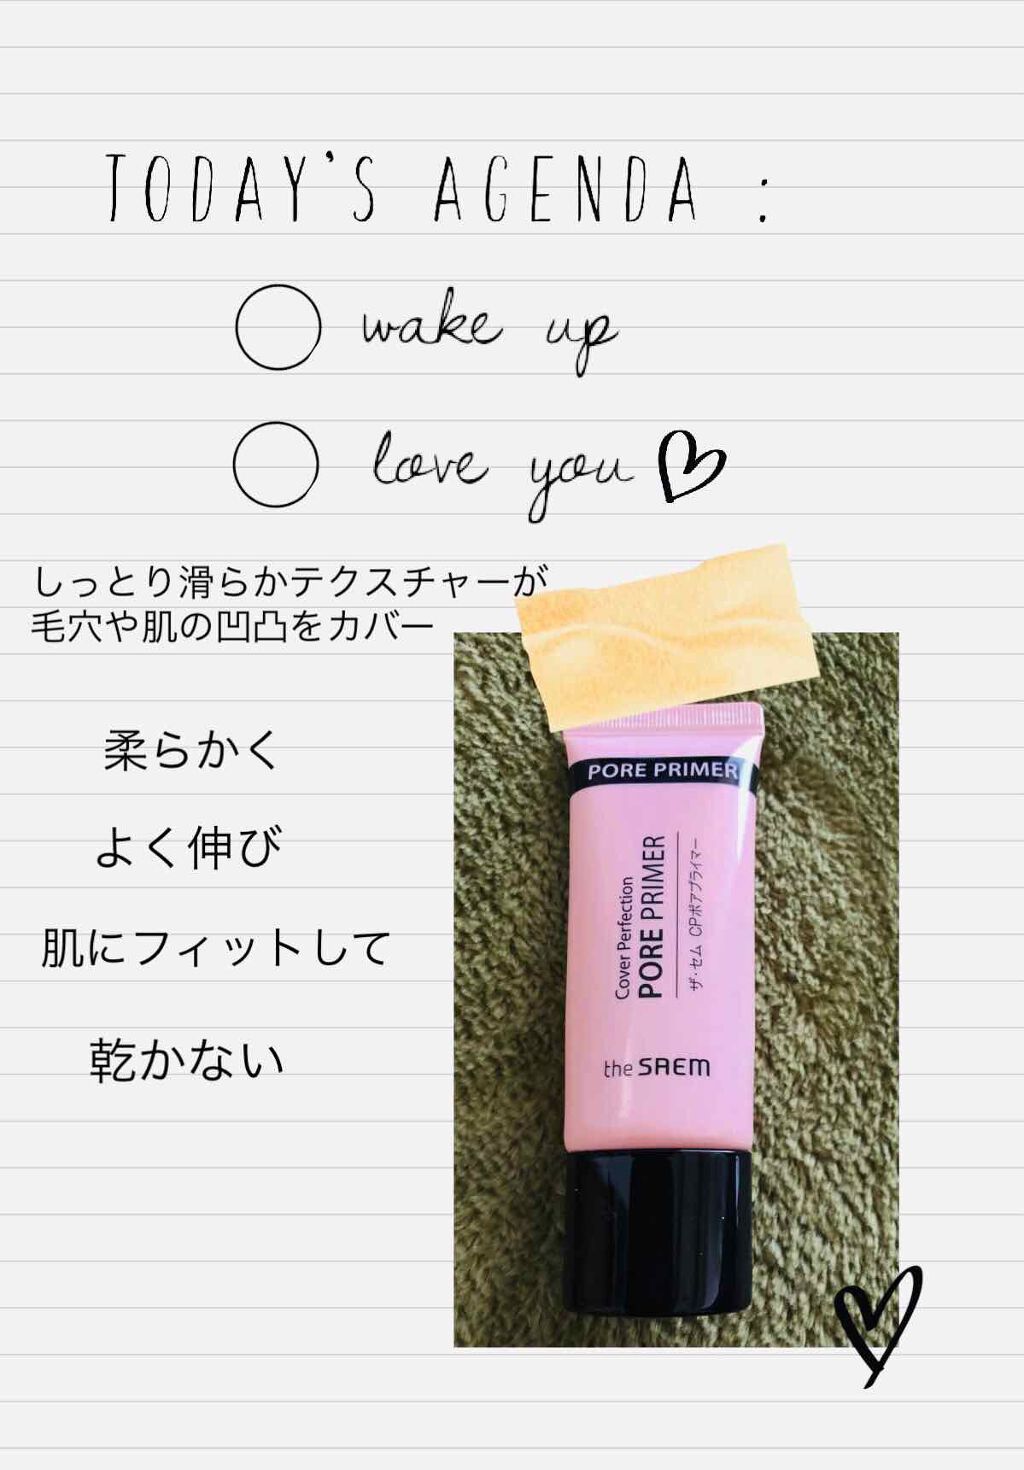 TODAY'S AGENDA :
wake up
love you
しっとり滑らかテクスチャーが
毛穴や肌の凹凸をカバー
柔らかく
よく伸び
肌にフィットして
乾かない
PORE PRIMER
Cover Perfection
PORE PRIMER
ザ・セム CPポアプライマー
the SAEM